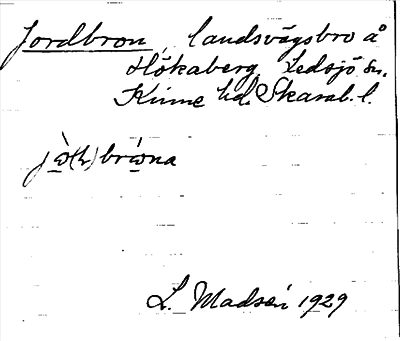 Jordbron, landsvägsbro å
Hökaberg, Ledsjö sn.
Kinne hd. Skarab. l.
jὼ(ł)brώna
L. Madsén 1929